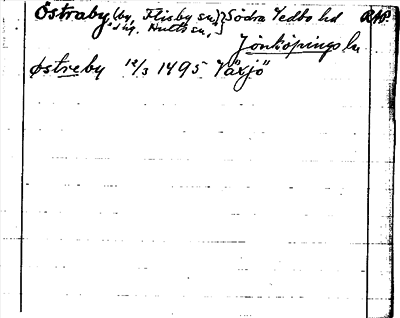 Östraby (by, Flisby sn,) Södra Vedbo hd
säg. Hults sn,
Jönköpings ln
østreby 12/3 1495 Växjö